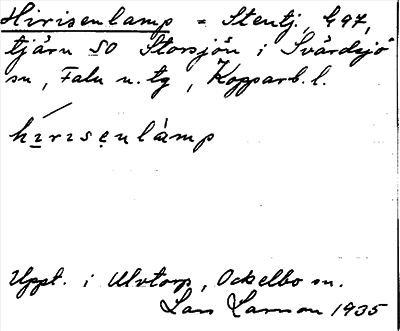 Hirisenlamp = Stentj. G 97,
tjärn SO Storsjön i Svärdsjö
sn, Falu n. tg, Kopparb. l.
hịrisẹnlàmp
Uppt. i Ulvtorp, Ockelbo sn.
Lars Larsson 1935